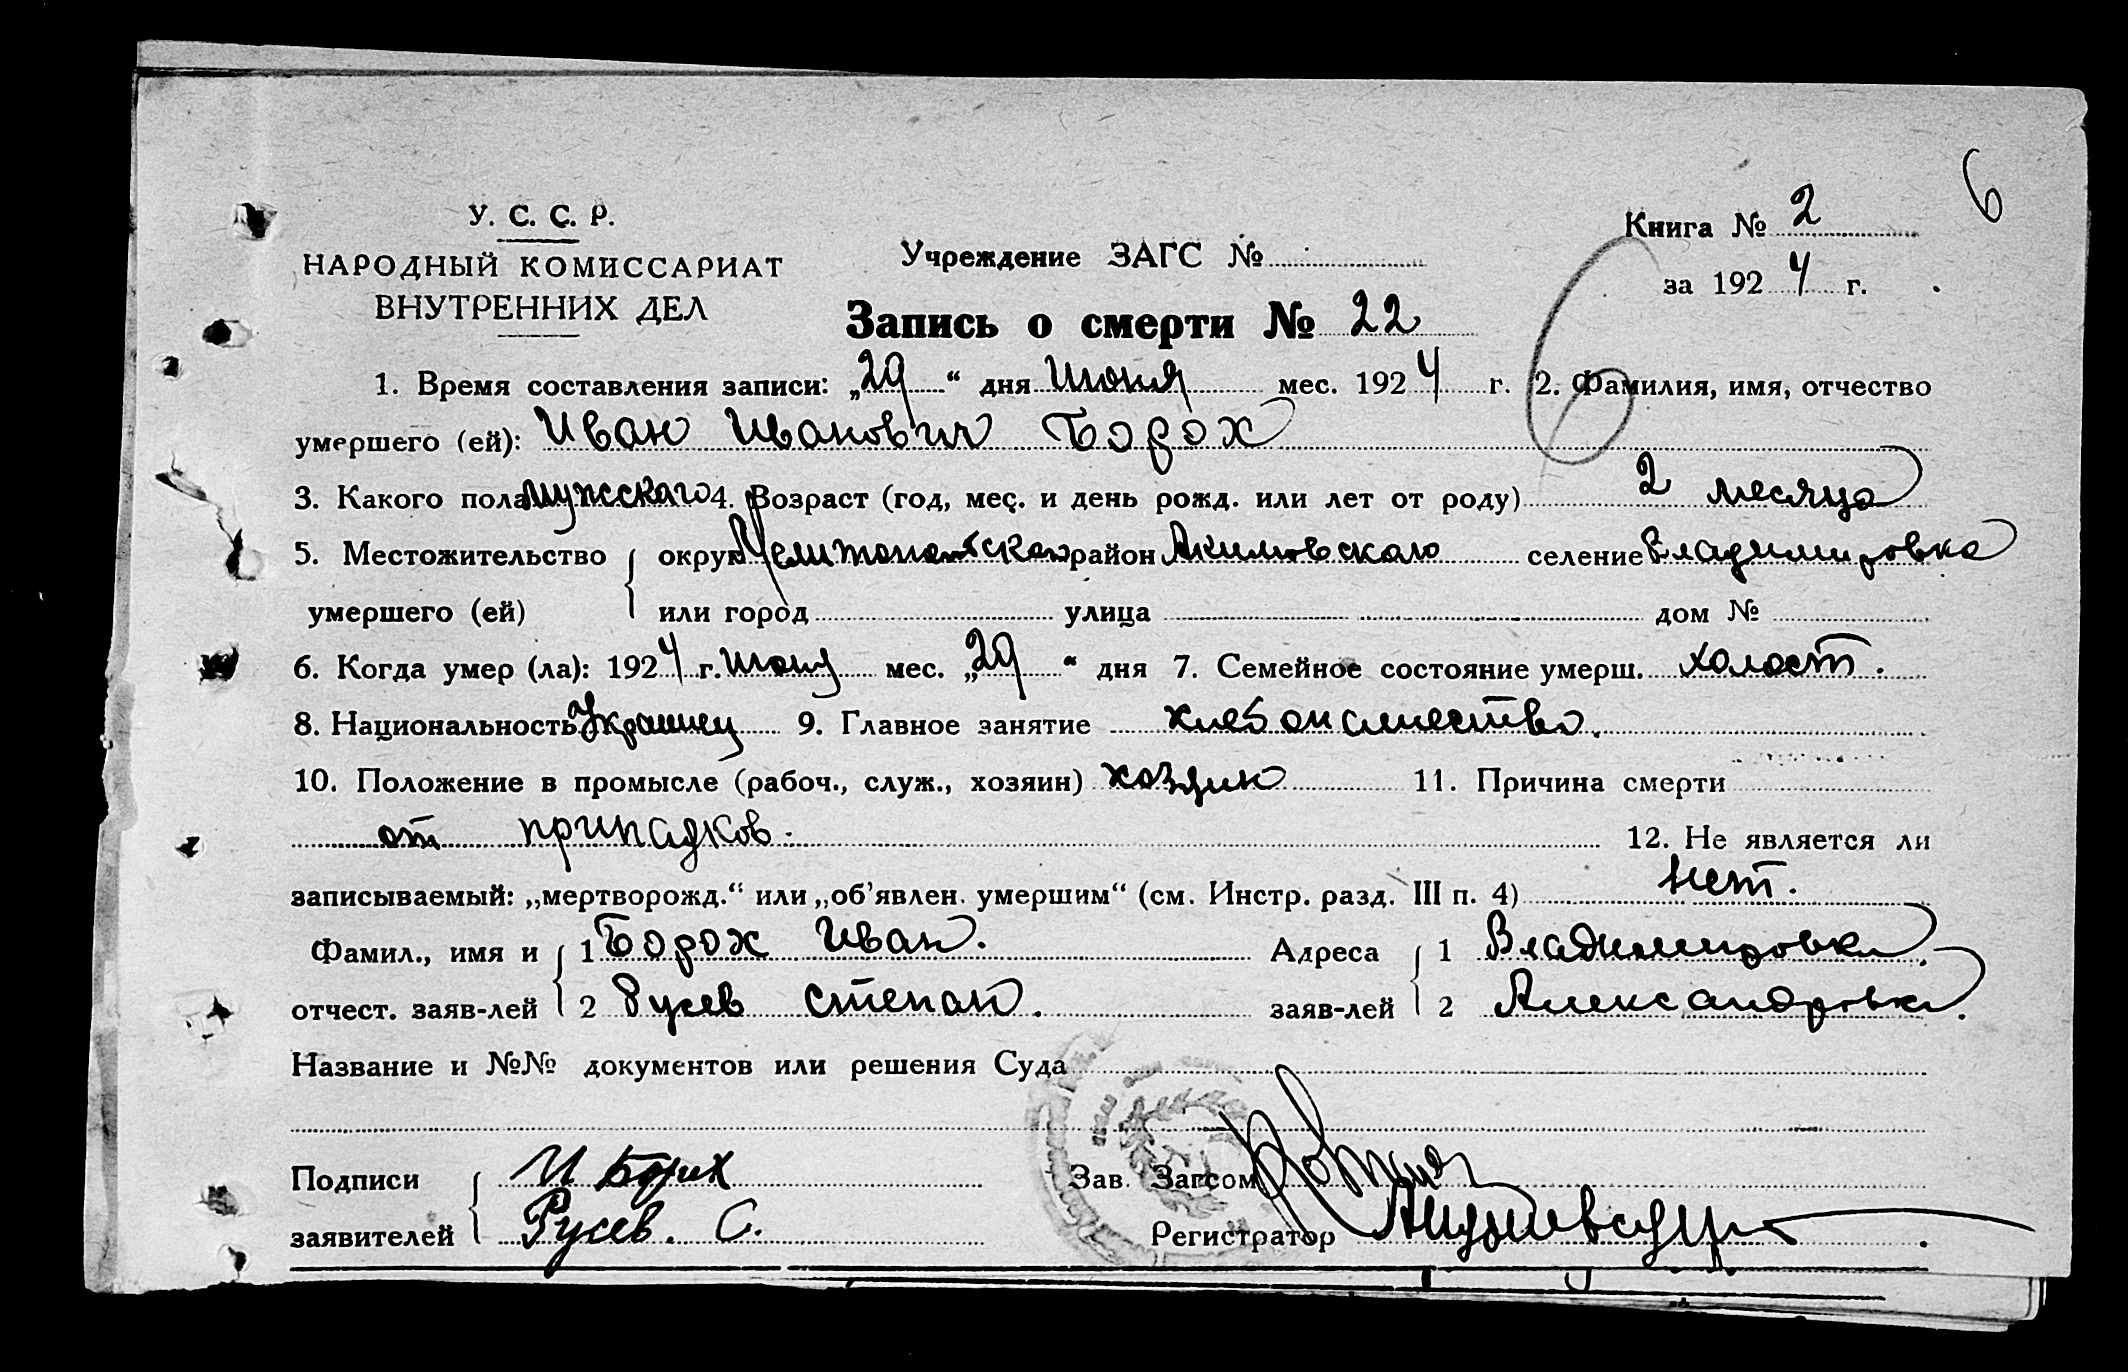 6
У. С. С. Р.
НАРОДНЫЙ КОМИССАРИАТ
ВНУТРЕННИХ ДЕЛ
Учреждение ЗАГС №
Книга № 2
за 1924 г.
Запись о смерти № 22
1. Время составления записи: „29“ дня Июня мес. 1924 г. 2. Фамилия, имя, отчество
умершего (ей): Иван Иванович Борох
3. Какого пола мужскаго 4. Возраст (год, мес. и день рожд. или лет от роду) 2 месяца
5. Местожительство округ район Акимовскаго селение Владимировка
умершего (ей) или город улица дом №
6. Когда умер (ла): 1924 г. июня мес. „29“ дня 7. Семейное состояние умерш. холост.
8. Национальность Украинец 9. Главное занятие
10. Положение в промысле (рабоч., служ., хозяин) хозяин 11. Причина смерти
от припадков.
12. Не является ли
записываемый: „мертворожд.“ или „об’явлен. умершим“ (см. Инстр. разд. III п. 4) нет.
Фамил., имя и 1 Борох Иван. Адреса 1 Владимировка
отчест. заяв-лей 2 Русев Степан. заяв-лей 2 Александровка.
Название и №№ документов или решения Суда
Подписи И Борих Зав. Загсом
заявителей Русев. С. Регистратор